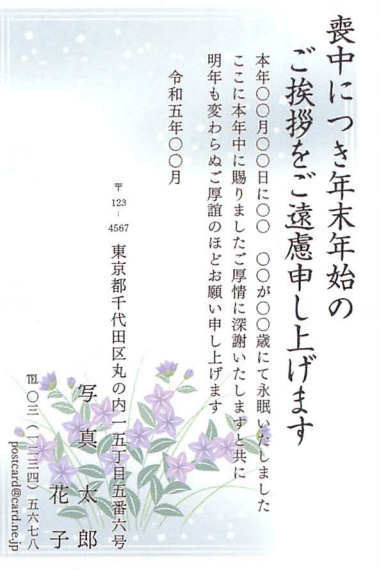 喪中につき年末年始の
ご挨拶をご遠慮申し上げます
本年〇〇月〇〇日に〇〇　〇〇が〇〇歳にて永眠いたしました
ここに本年中に賜りましたご厚情に深謝いたしますと共に
明年も変わらぬご厚誼のほどお願い申し上げます
令和五年〇〇月
〒123-4567
東京都千代田区丸の内一五丁目五番六号
写真　太郎
花子
℡〇三(一二三四)五六七八
postcard@card.ne.jp